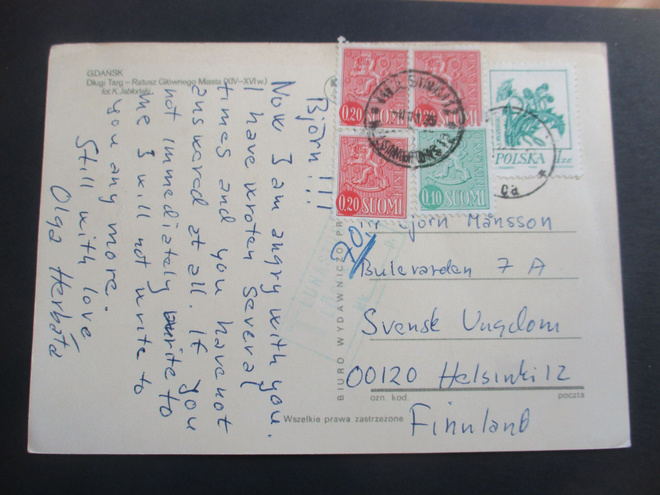 GDAŃSK
Długi Targ – Ratusz Głównego Miasta (XIV–XVI w.)
fot. K. Jabłoński
Björn!!!
Now I am angry with you.
I have wroten several
times and you have not
answered at all. If you
not immediately write to
me I will not write to
you any more.
Still with love
Olga Herbata
BIURO WYDAWNICZO PR
0,20
0,20
SUOMI
0,20
SUOMI
0,10
POLSKA
1 zł
20
Björn Månsson
Bulevarden 7 A
Svensk Ungdom
00120 Helsinki 12
ozn. kod.
poczta
Finnland
Wszelkie prawa zastrzeżone